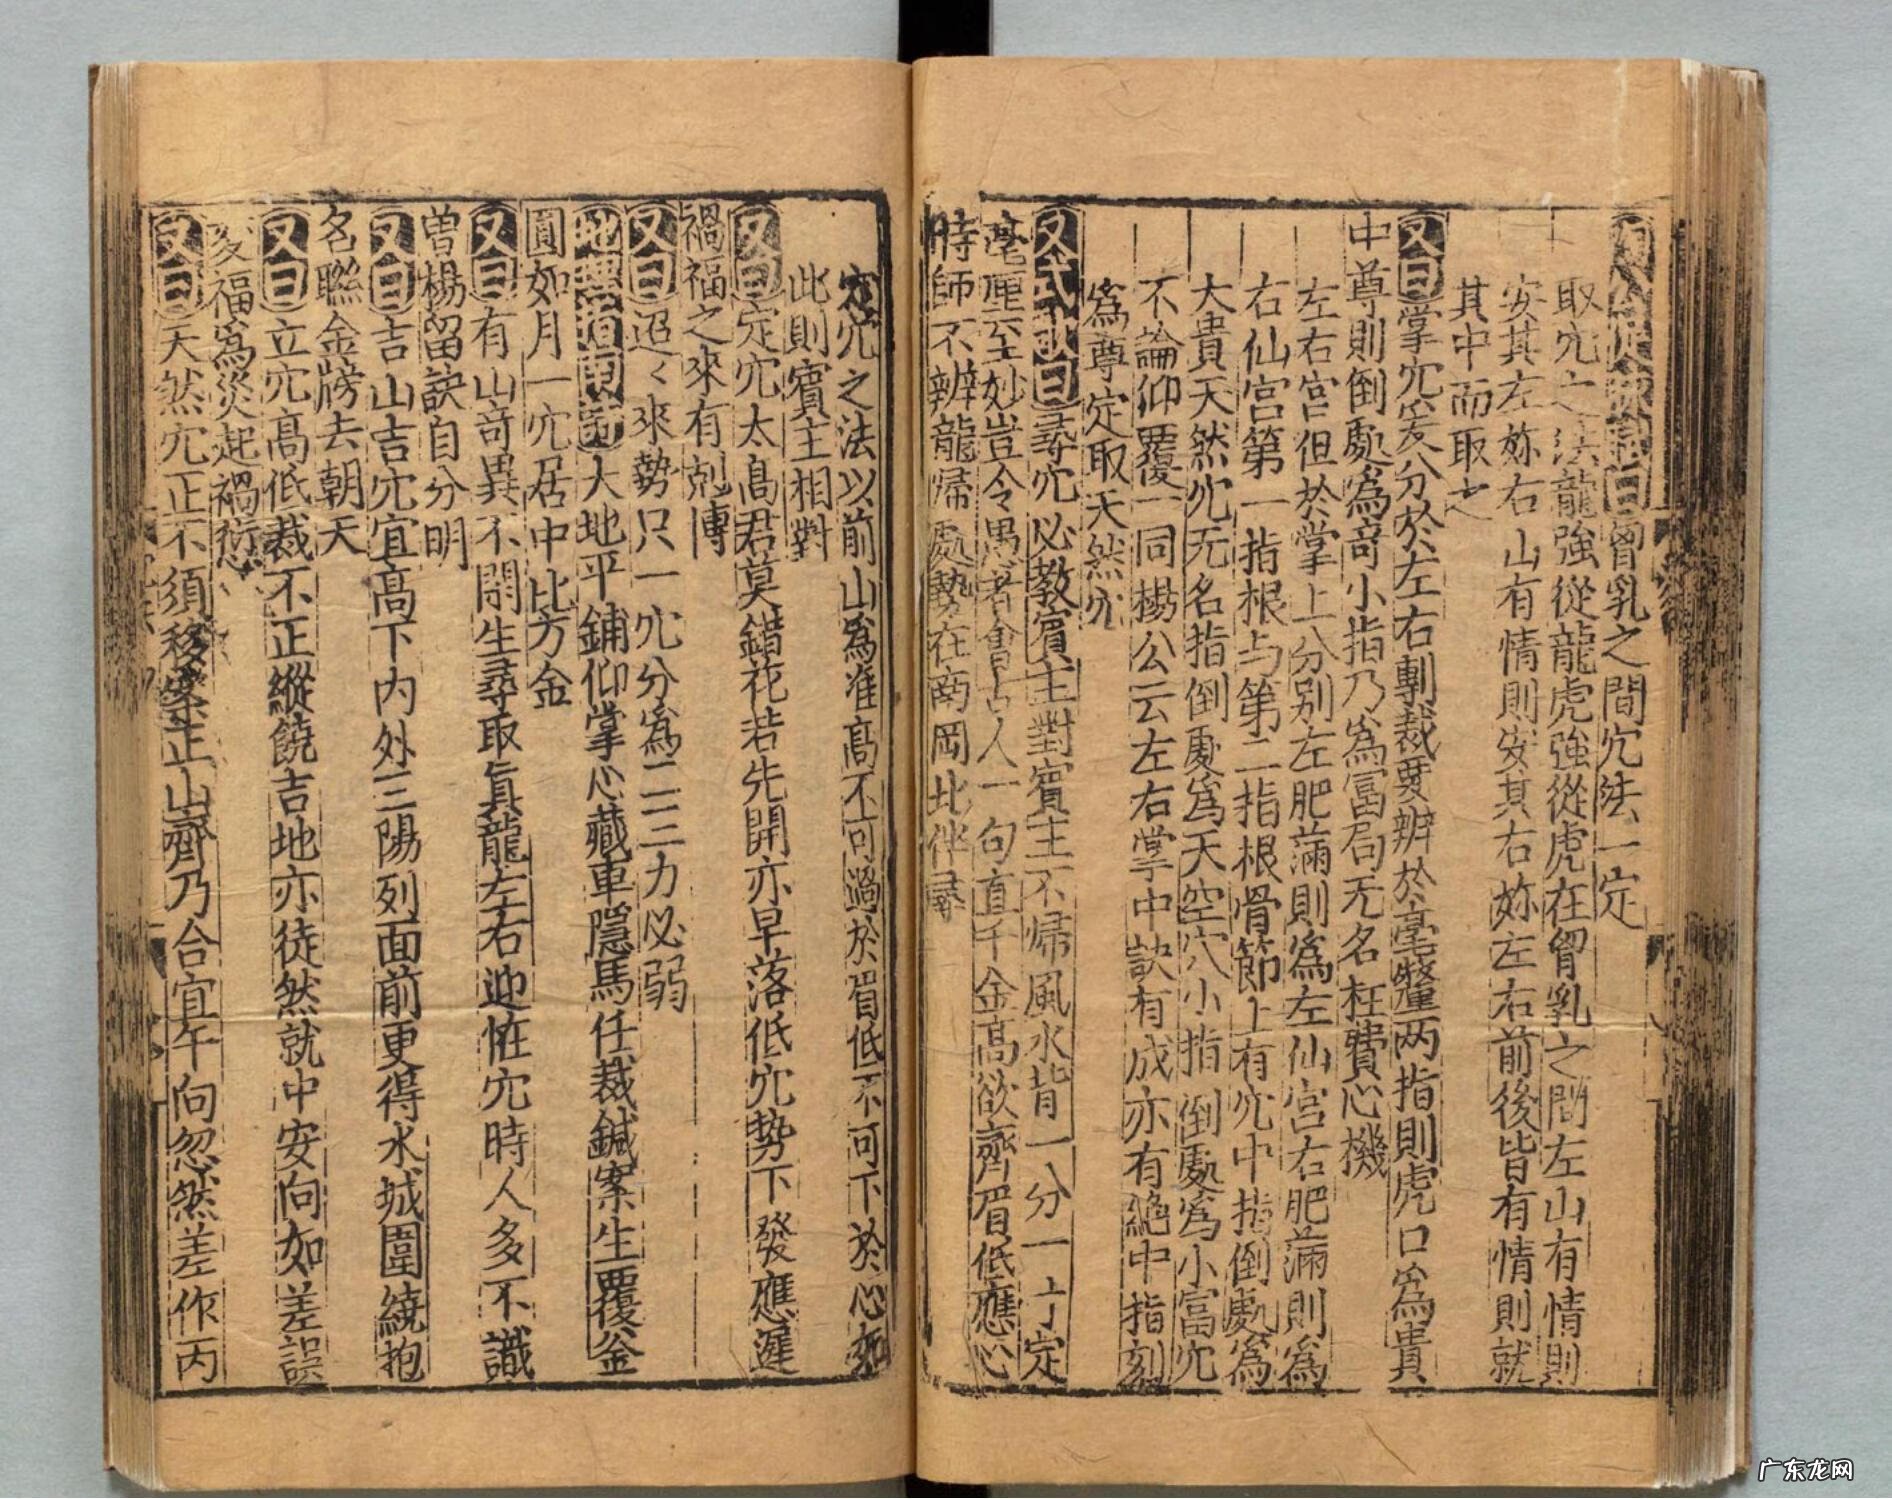 曰胷乳之間穴法一定
取穴之法龍強從龍虎強從虎在胷乳之間左山有情則
安其左妳右山有情則安其右妳左右前後皆有情則就
其中而取之
又曰掌穴爰分於左右剸裁要辨於毫釐两指則虎口為貴
中尊則倒處為竒小指乃為冨局无名枉費心機
左右宫但於掌上分别左肥滿則為左仙宫右肥滿則為
右仙宫第一指根与第二指根骨節上有穴中指倒處為
大貴天然穴无名指倒處為天空穴小指倒處為小富穴
不論仰覆一同楊公云左右掌中訣有成亦有絶中指刻
為尊定取天然穴
又式歌曰尋穴必教賔主對賔主不歸風水背一分一寸定
毫厘至妙豈令愚者會古人一句直千金高欲齊眉低應心
時師不辨龍歸處勢在南岡北伴尋
定穴之法以前山為准高不可過於眉低不可下於心
此則賔主相對
又曰定穴太高君莫錯花若先開亦早落低穴势下發應遲
禍福之來有剋慱
又曰迢々來勢只一穴分為二三力必弱
地理指南曰大地平鋪仰掌心藏車隱馬任裁鍼案生覆釜
圓如月一穴居中比方金
又曰有山竒異不閑生尋取眞龍左右迎怪穴時人多不識
曽楊留訣自分明
又曰吉山吉穴宜高下内外三陽列面前更得水城圍繞抱
名聯金牓去朝天
又曰立穴高低裁不正縱饒吉地亦徒然就中安向如差誤
変福為災起禍愆
又曰天然穴正不須移案正山齊乃合宜午向忽然差作丙
广东龙网